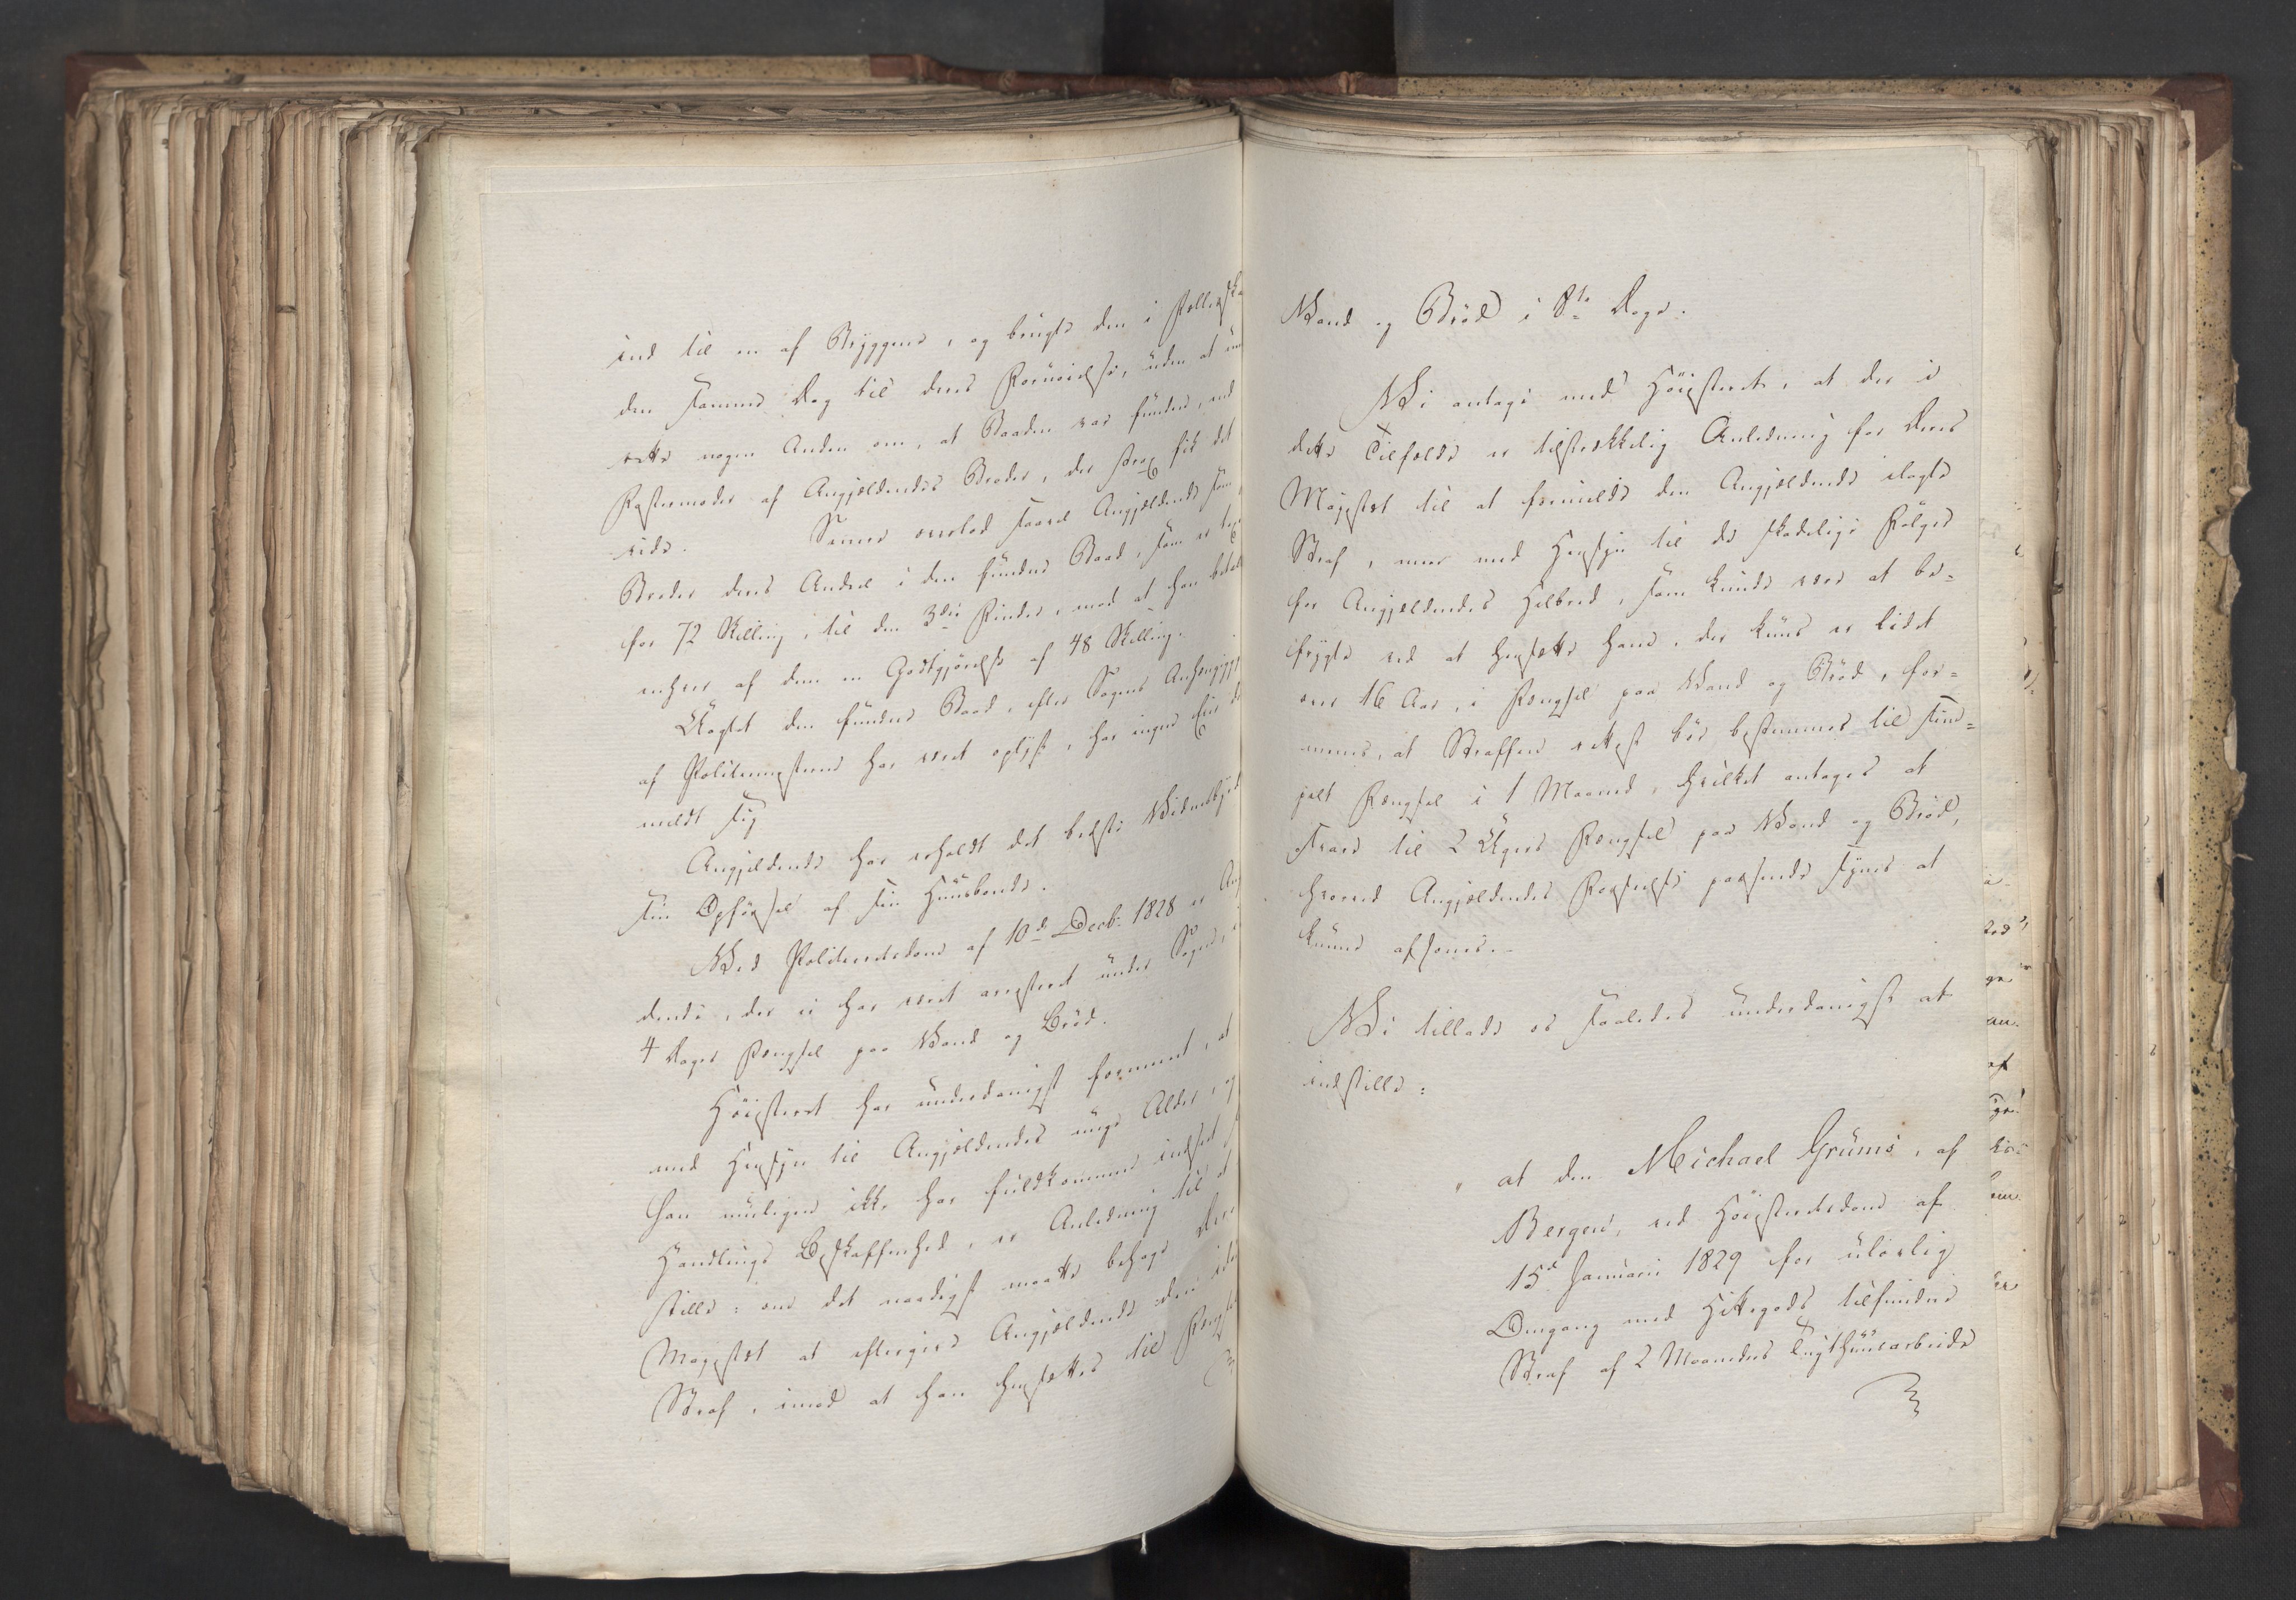 ind til en af Bryggene, og brugte den i Selskab
den samme Dag til deres Fornøielse, uden at un
rette nogen Anden om, at Baaden var funden, end
Fostermoder af Angjeldendes Broder, der strax fik det
vide. Senere overlod saavel Angjeldende som
Broder deres Andeel i den fundne Baad, som er tax
for 72 Skilling, til den 3die Finder, mod at han betal
enhver af dem en Godtgjørelse af 48 Skilling.
Uagtet den fundne Baad, efter Sagens Anhængig
af Politiemesteren har været oplyst, har ingen Eier
meldt sig
Angjeldende har erholdt det bedste Vidnesbyrd
sin Opførsel af sin Huusbonde.
Ved Politieretsdom af 10de Decb. 1828 er Ang
dende, der ei har været arresteret under Sagen,
4 Dages Fængsel paa Vand og Brød.
Høiesteret har underdanigst formeent, at
med Hensyn til Angjeldendes unge Alder, og
han mueligen ikke har fuldkommen indseet
Handlings Beskaffenhed, er Anledning til at
stille: om det naadigst maatte behage Deres
Majestet at eftergive Angjeldende den idømte
Straf, imod at han hensættes til Fængsel
Vand og Brød i 8te Dage.
Vi antage med Høiesteret, at der i
dette Tilfælde er tilstrækkelig Anledning for Deres
Majestet til at formilde den Angjeldende ilagte
Straf, men med Hensyn til de skadelige Følger
for Angjeldendes Helbred, som kunde være at be-
frygte ved at hensætte ham, der kuns er lidet
over 16 Aar, i Fængsel paa Vand og Brød, for-
menes, at Straffen rettest bør bestemmes til sim-
pelt Fængsel i 1 Maaned, hvilket antages at
svare til 2 Ugers Fængsel paa Vand og Brød,
hvorved Angjeldendes Forseelse passende synes at
kunne afsones.
Vi tillade os saaledes underdanigst at
indstille:
" at den Michael Grüner, af
Bergen, ved Høiesteretsdom af
15de Januarii 1829 for ulovlig
Omgang med Hittegods tilfundne
Straf af 2 Maaneders Tugthuusarbeide